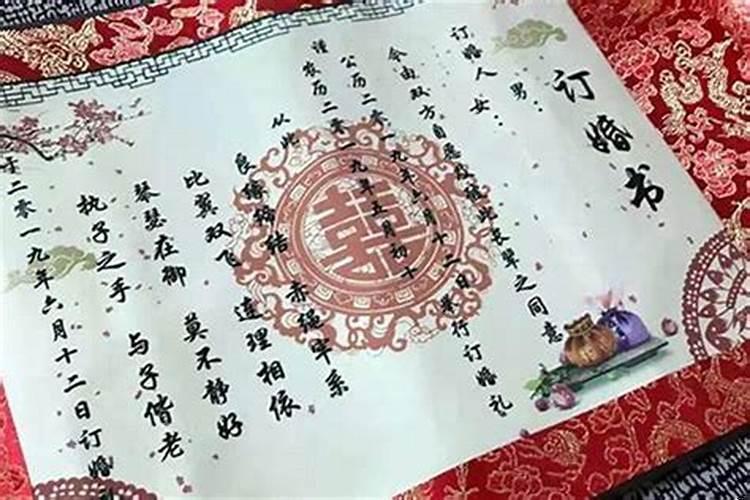 订婚书
订婚人 男：
女：
今由双方自愿及
此长辈之同意
公历二零一九年六月十二日举行订婚礼
谨农历二零一九年五月初十
从此
良缘缔结 赤绳牢系
比翼双飞 连理相依
琴瑟在御 莫不静好
执子之手 与子偕老
于二零一九年六月十二日订婚